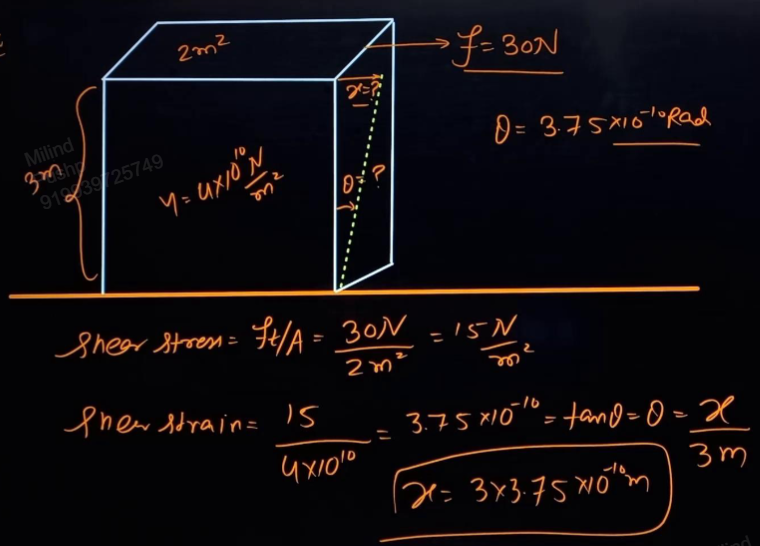 2m²
f = 30N
x = ?
θ = 3.75×10⁻¹⁰ Rad
Milind
919839725749
3m
η = 4×10¹⁰ N/m²
θ = ?
Shear stress = ft/A = 30N/2m² = 15 N/m²
Shear strain = 15/4×10¹⁰ = 3.75×10⁻¹⁰ = tanθ = θ = x/3m
x = 3×3.75×10⁻¹⁰m